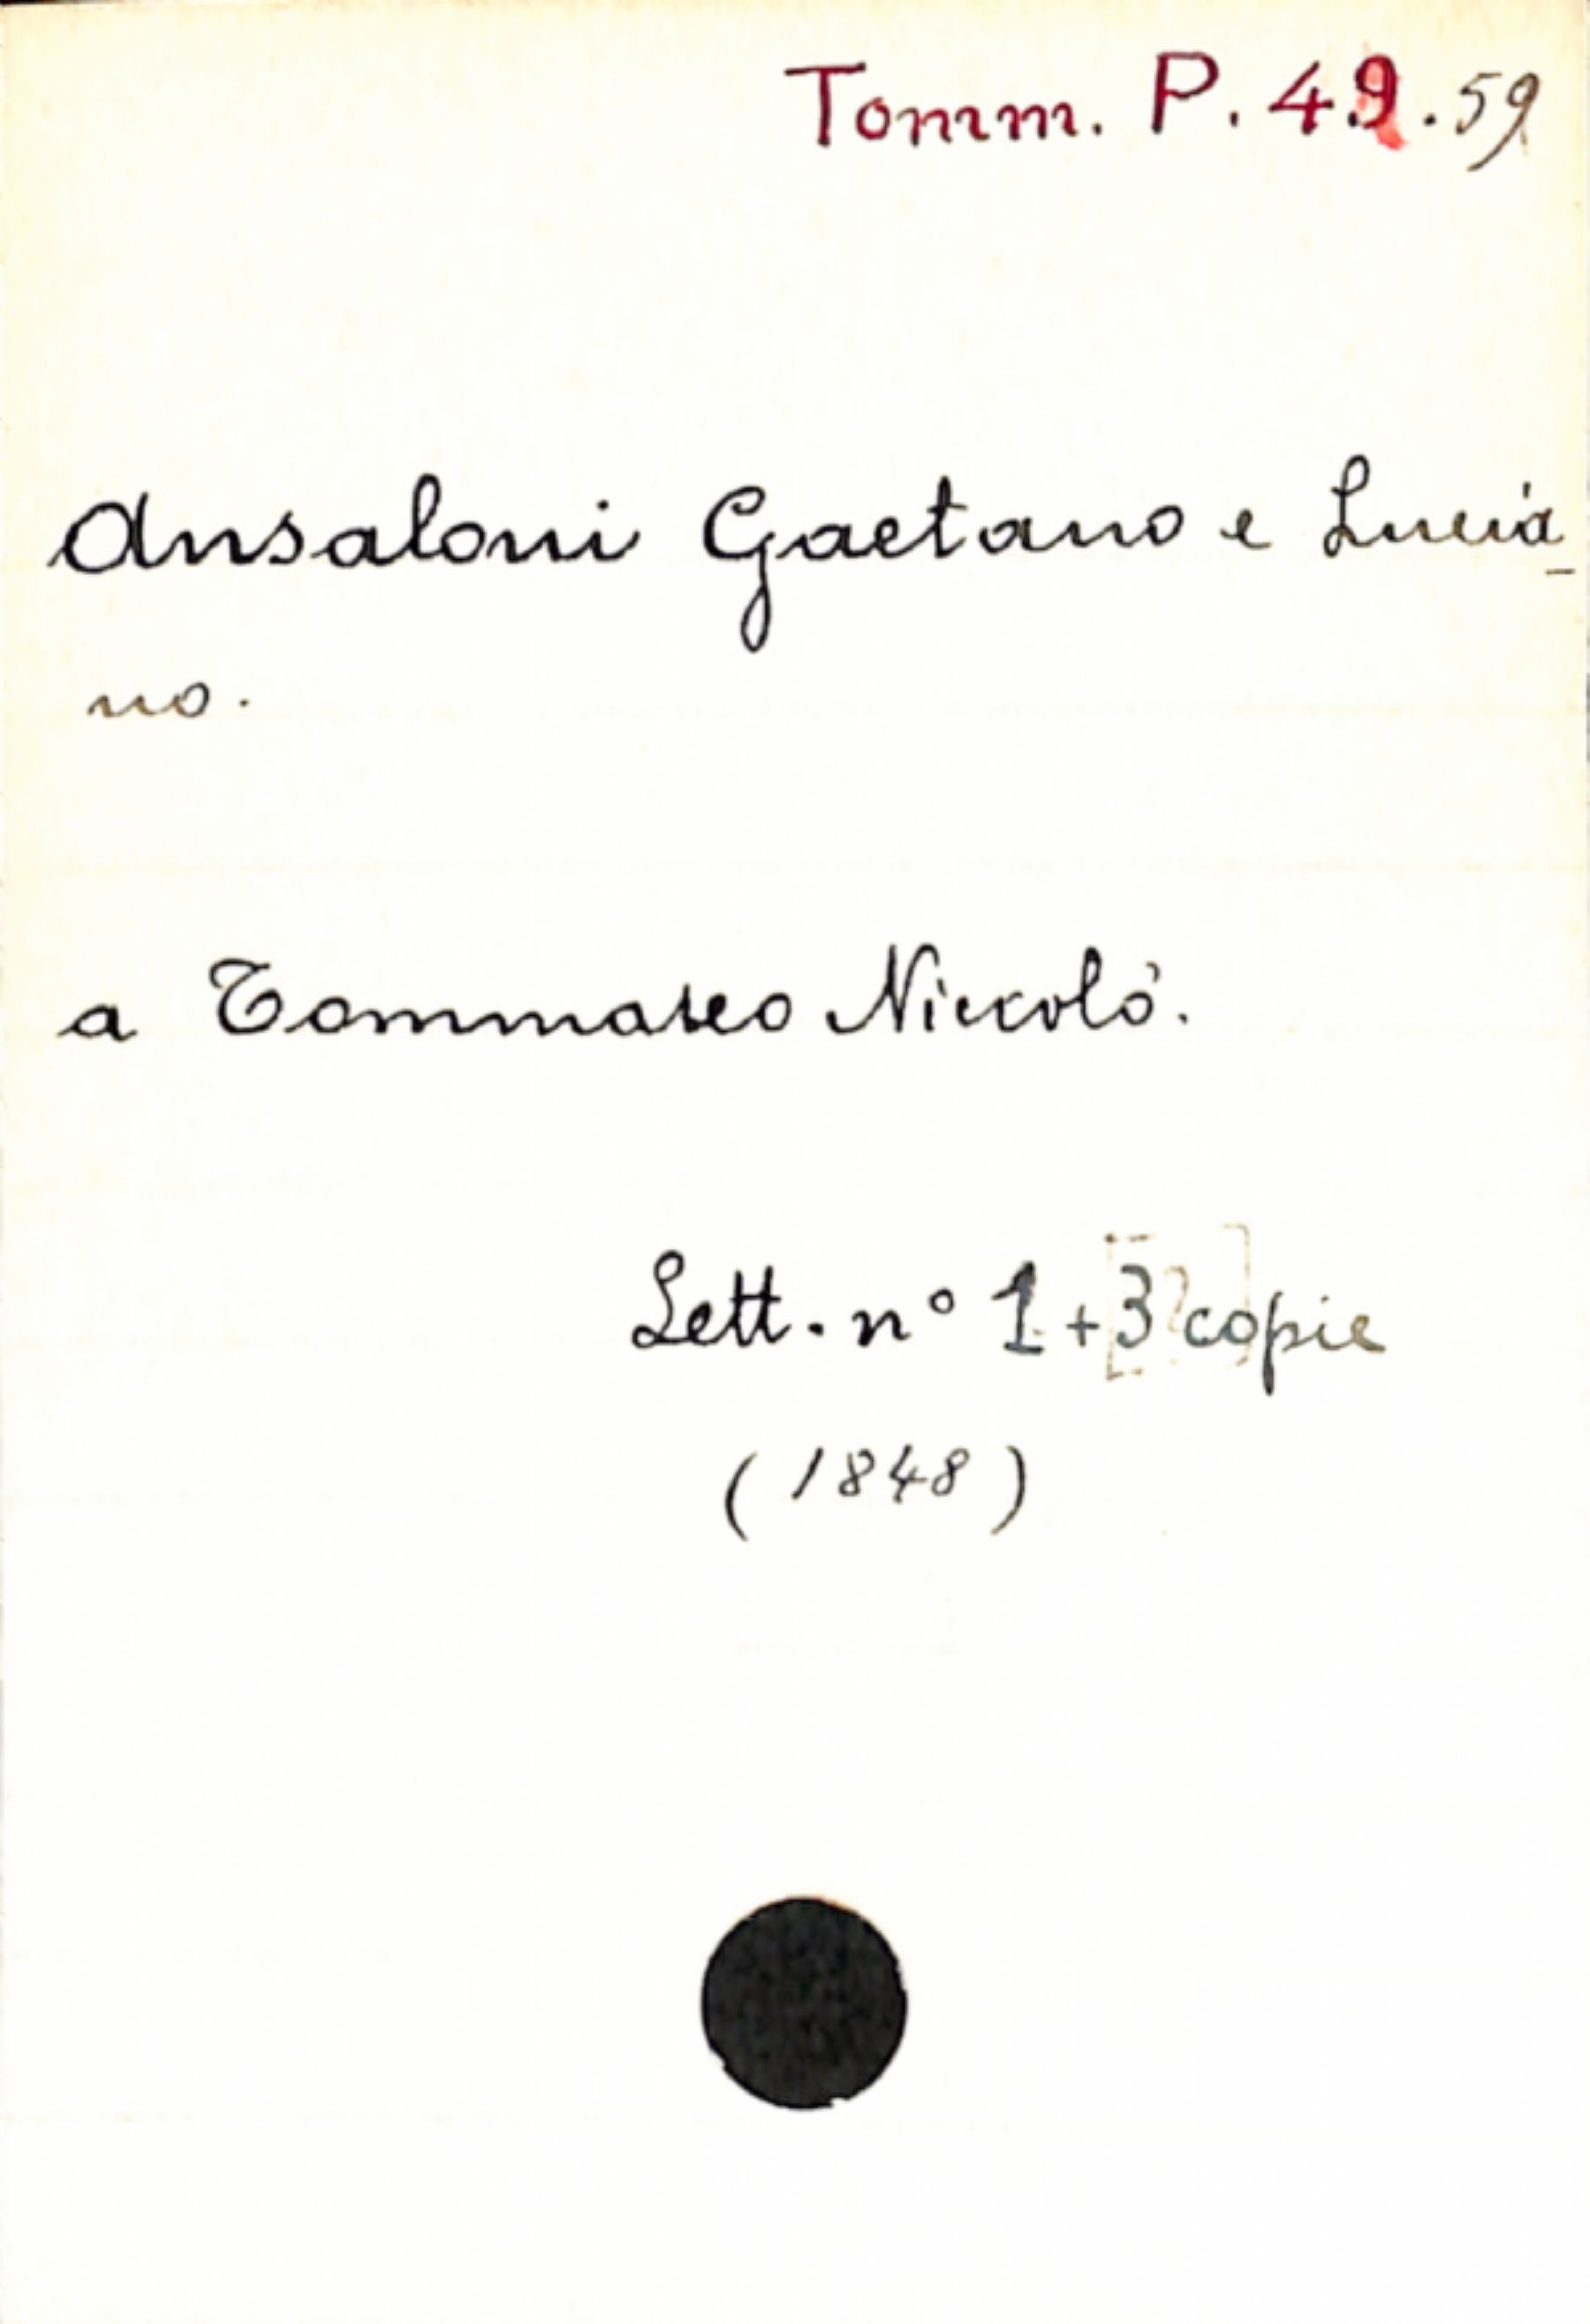 Tomm. P. 49.59
Ansaloni Gaetano e Lucia-
no.
a Tommaseo Niccolò.
Lett. n° 1 + 3 copie
(1848)